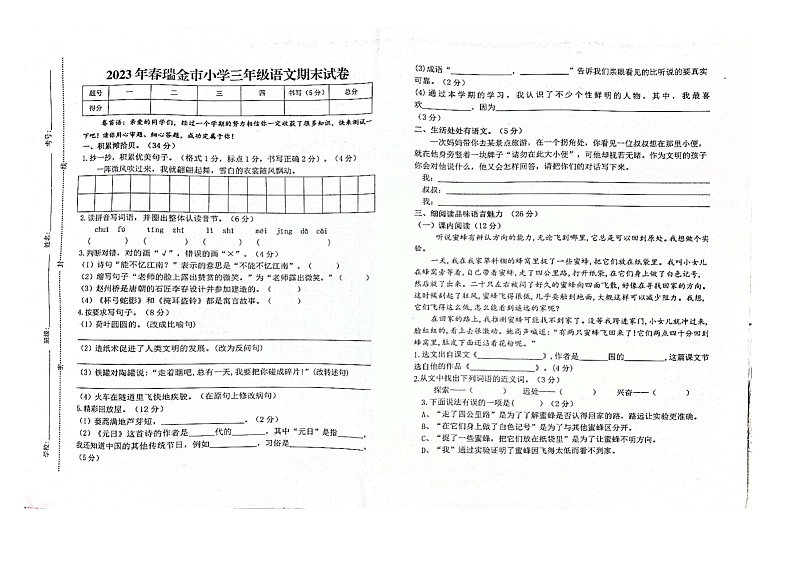 2023 年春瑞金市小学三年级语文期末试卷
题号 一 二 三 四 书写(5分) 总分
得分
卷首语：亲爱的同学们，经过一个学期的努力相信你一定收获了很多知识，快来测试一
下吧！请你用心审题、细心答题，成功定属于你！
一、积累摊拾贝。（34 分）
1.抄一抄，积累优美句子。（格式 1 分，标点 1 分，书写正确 2 分）。（4分）
一阵微风吹过来，我就翩翩起舞，雪白的衣裳随风飘动。
2.读拼音写词语，并圈出整体认读音节。（6分）
chuī fú tíng zhǐ lì shǐ měi jīng dǎ cǎi
（ ） （ ） （ ） （ ） （ ）
3.判断对错，对的画"√"，错误的画"×"。（4分）
（1）诗句"能不忆江南？"表示的意思是"不能不忆江南"。（ ）
（2）缩写句子"老师的脸上露出赞赏的微笑。"为"老师露出微笑。"（ ）
（3）赵州桥是唐朝的石匠李春设计并参加建造的。（ ）
（4）《杯弓蛇影》和《掩耳盗铃》都是寓言故事。（ ）
4.按要求写句子。（8分）
（1）荷叶圆圆的。（改成比喻句）
（2）造纸术促进了人类文明的发展。（改为反问句）
（3）铁罐对陶罐说："走着瞧吧，总有一天，我要把你碰成碎片！"（改转述句）
（4）火车在隧道里飞快地疾驶。（在原句上修改病句）
5.精彩回放屋。（12 分）
（1）蒌蒿满地芦芽短，____________。（2分）
（2）《元日》这首诗的作者是______代的________，其中"元日"是指______，
我还知道中国的其他传统节日，例如__________，习俗是____________。
（6分）
学校：
班级：
姓名：
考号：
密
封
线
（3）成语"____________，____________"告诉我们亲眼看见的比听说的要真实
可靠。（2分）
（4）通过本学期的学习，我认识了不少个性鲜明的人物。其中，我最喜
欢__________，因为____________
（3分）
二、生活处处有语文。（5 分）
一次妈妈带你去某景点旅游，在一个拐角处，你看见一位叔叔想在那里小便，
就在他身旁竖着一块牌子"请勿在此大小便"，可他却视若无睹。作为文明的孩子
你会对他说什么，他又会怎样回答，请把你们的对话写下来。
我：
叔叔：
我：
三、细阅读品味语言魅力 （26 分）
（一）课内阅读（12 分）
听说蜜蜂有辨认方向的能力，无论飞到哪里，它总是可以回到原处。我想做个实
验。
一天，我在我家草料棚的蜂窝里捉了一些蜜蜂，把它们放在纸袋里。我叫小女儿
在蜂窝旁等着，自己带着蜜蜂，走了四公里路，打开纸袋，在它们身上做了白色记号，
然后放了出来。二十只左右被闷了好久的蜜蜂向四面飞散，好像在寻找回家的方向。
这时候刮起了狂风，蜜蜂飞得很低，几乎要触到地面，大概这样可以减少阻力。我想，
它们飞得这么低，怎么能看到遥远的家呢？
在回家的路上，我推测蜜蜂可能找不到家了。没等我跨进家门，小女儿就冲过来，
脸红红的，看上去很激动。她高声喊道："有两只蜜蜂飞回来了！它们两点四十分回到
蜂窝里，肚皮下面还沾着花粉呢。"
1.选文出自课文《____________》,作者是______国的__________,这篇课文节
选自他的作品《__________》。（4分）
2.从文中找出下列词语的近义词。（3 分）
探索——（ ） 远处——（ ） 兴奋——（ ）
3.下面说法有误的一项是( ) （2分）
A、"走了四公里路"是为了了解蜜蜂是否认得回家的路，路远让实验更准确。
B、"在它们身上做了白色记号"是为了与其他蜜蜂区分开。
C、"捉了一些蜜蜂，把它们放在纸袋里"是为了让蜜蜂不明方向。
D、"我"通过实验证明了蜜蜂因飞得太低而看不到家。